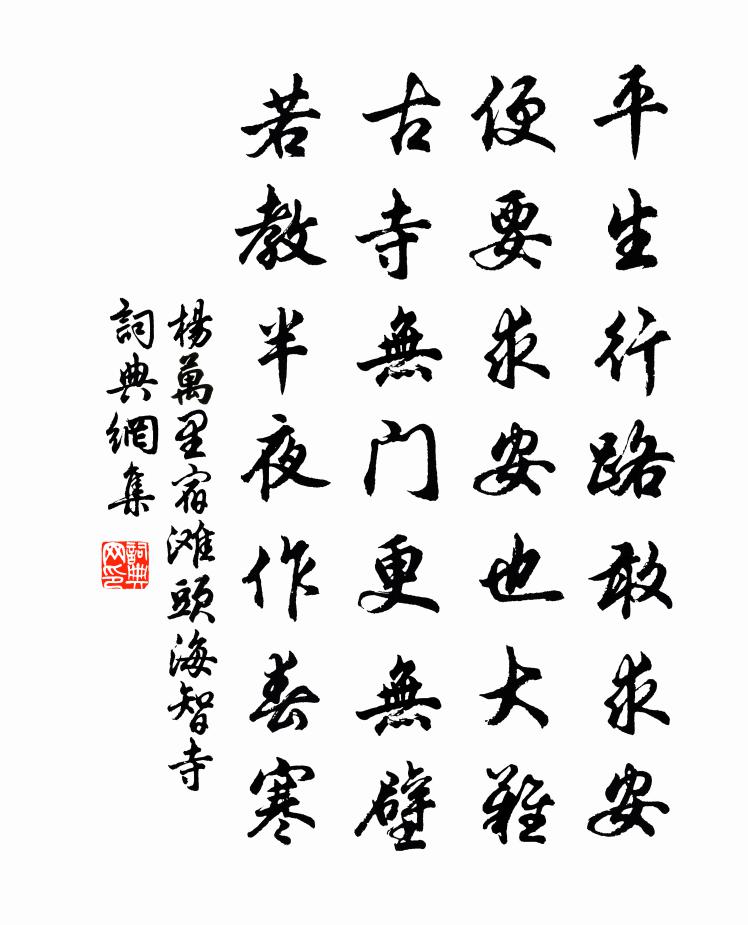 平生行路敢求安
便要求安也大難
古寺無门更無壁
若教半夜作春寒
楊萬里宿滩頭海智寺
詞典網集
詞典
网印